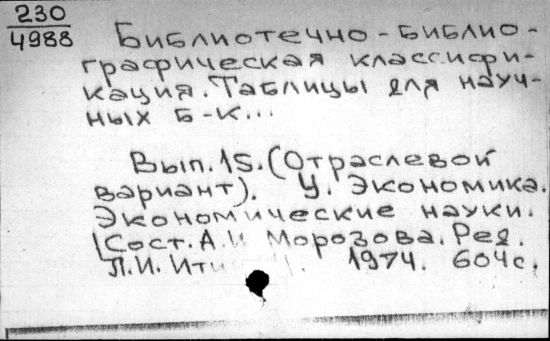 230
4988
Библиотечно-библио-
графическая классифи-
кация. Таблицы для науч-
ных б-к...
Вып. 15. (Отраслевой
вариант). У. Экономика.
Экономические науки.
[Сост. А.И Морозова. Ред.
Л.И. 1974. 604с.